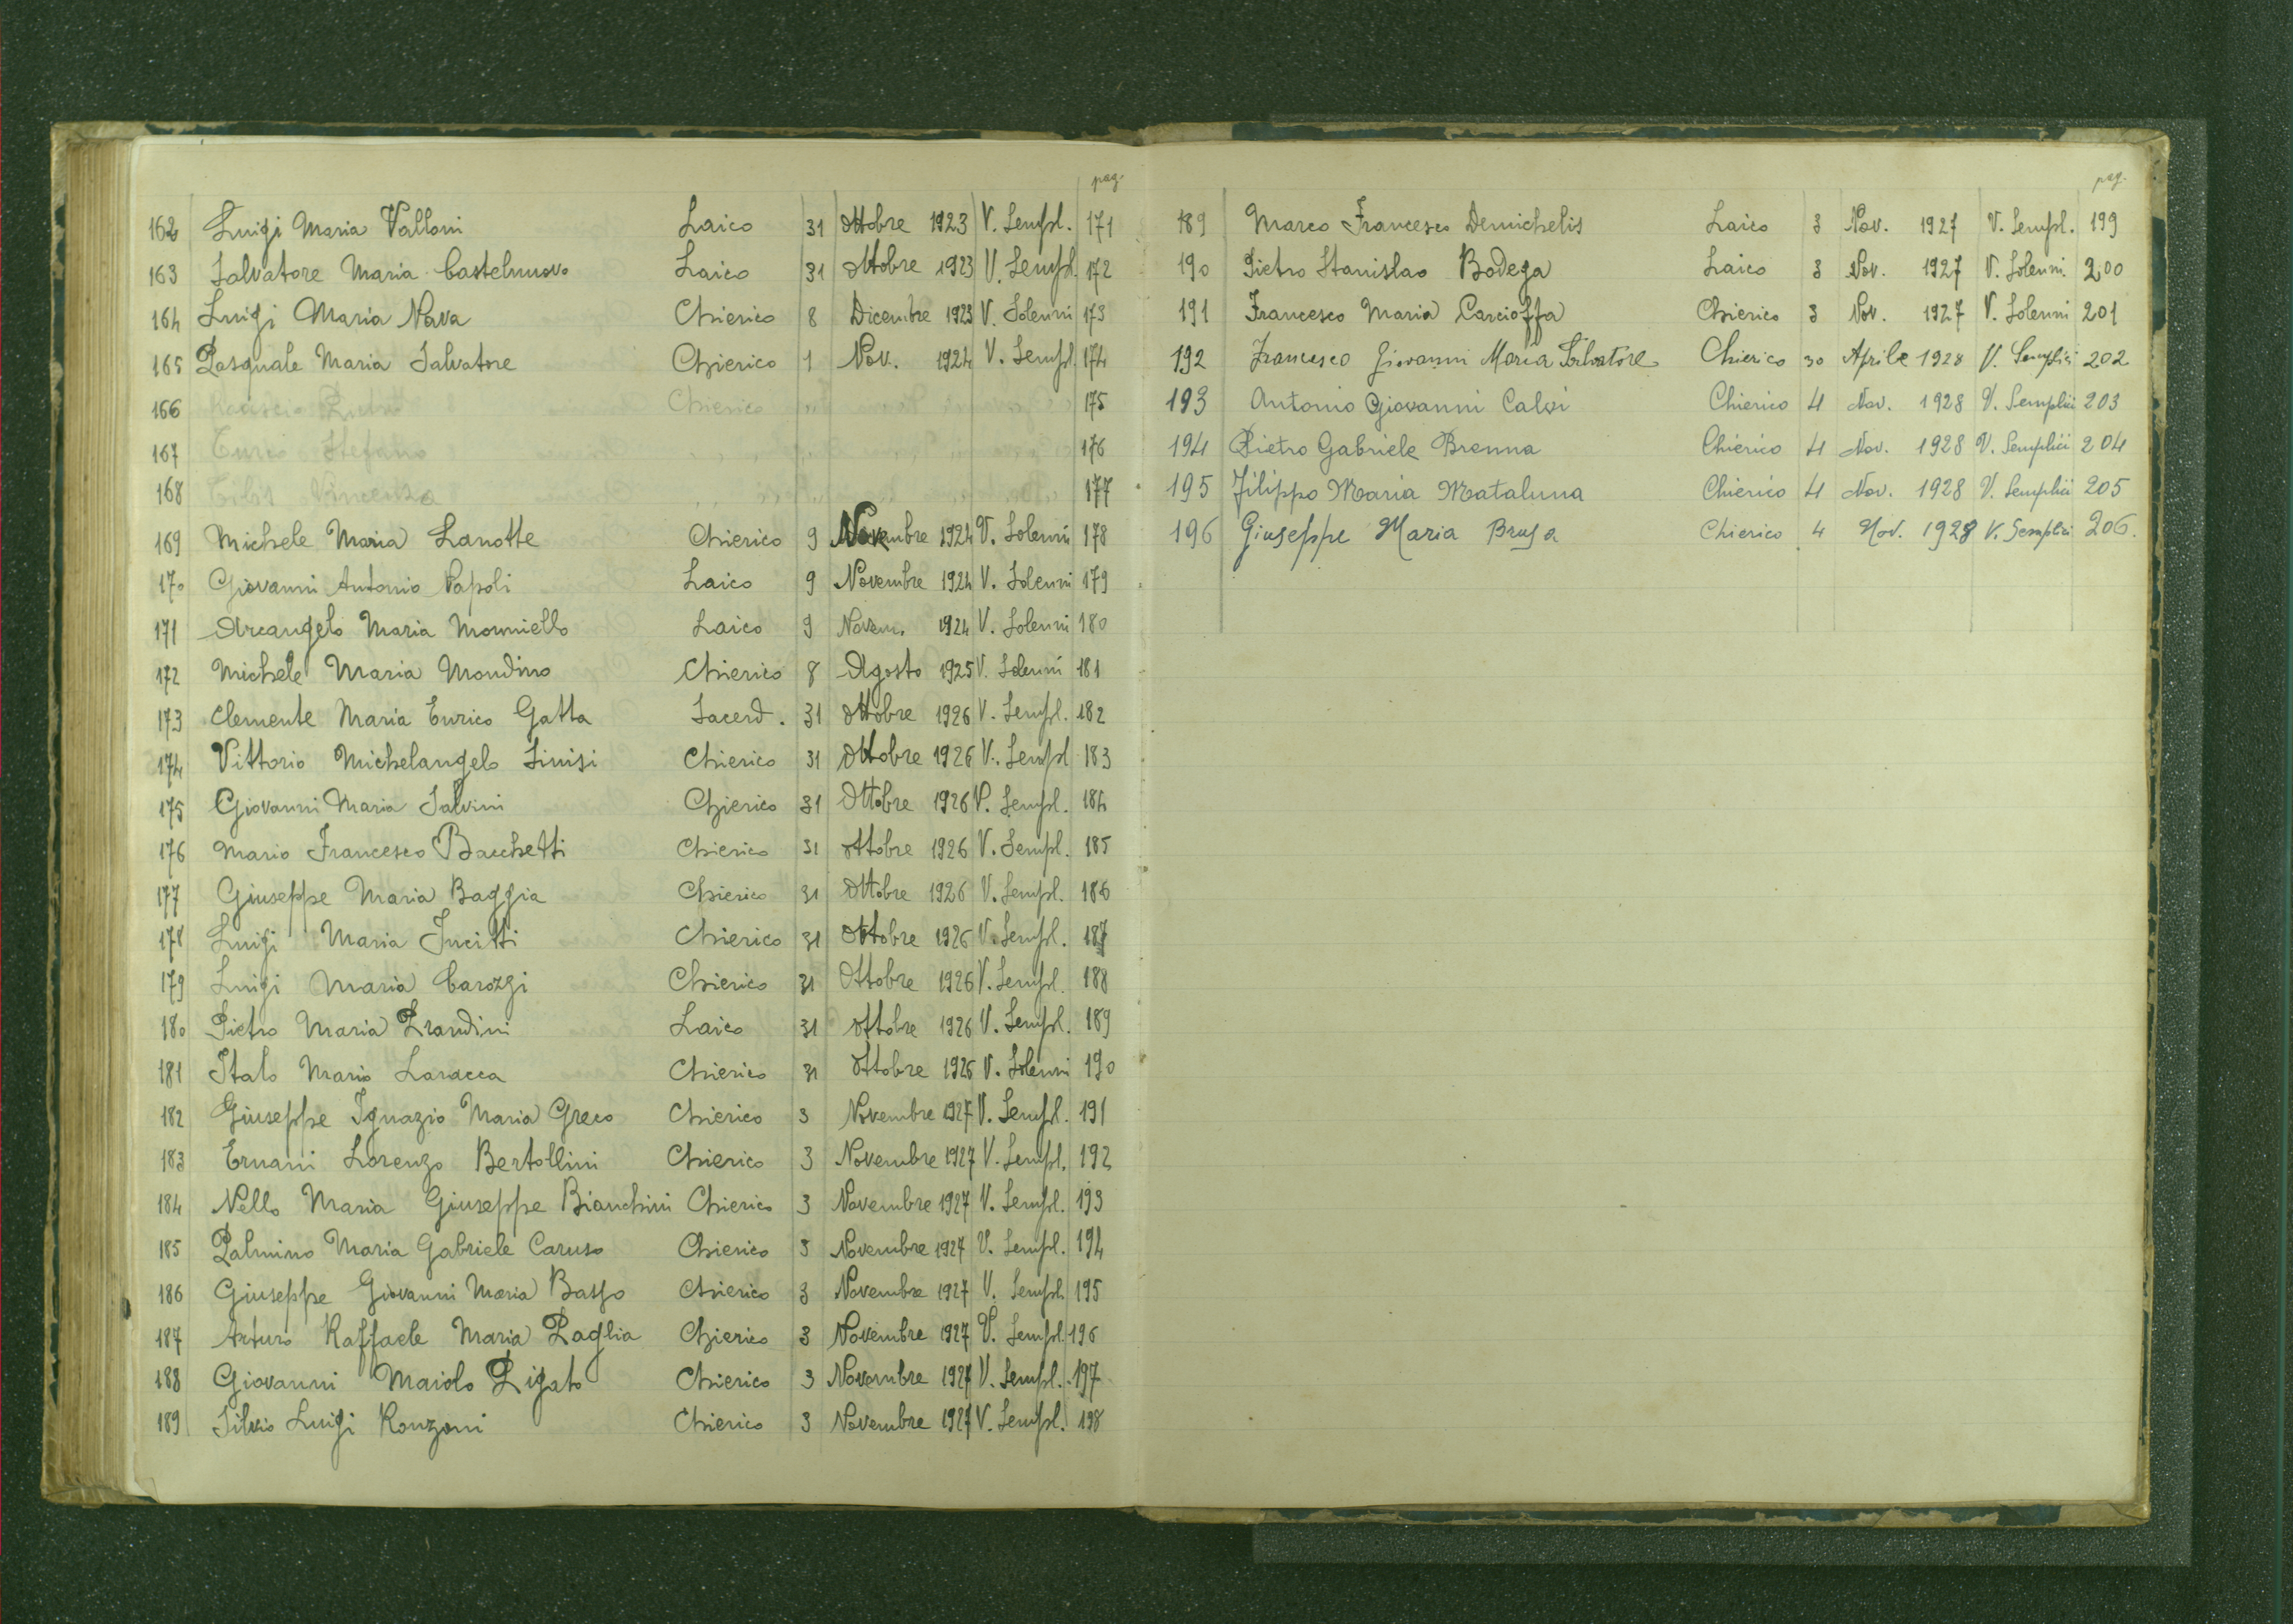 pag.
162 Luigi Maria Valloni Laico 31 Ottobre 1923 V. Sempl. 171
163 Salvatore Maria Castelnuovo Laico 31 Ottobre 1923 V. Sempl. 172
164 Luigi Maria Nava Chierico 8 Dicembre 1923 V. Solenni 173
165 Pasquale Maria Salvatore Chierico 1 Nov. 1924 V. Sempl. 174
166 Pietro Chierico 175
167 Curio Stefano 176
168 Vincenzo 177
169 Michele Maria Lanotte Chierico 9 Novembre 1924 V. Solenni 178
170 Giovanni Antonio Papoli Laico 9 Novembre 1924 V. Solenni 179
171 Arcangelo Maria Morniello Laico 9 Novem. 1924 V. Solenni 180
172 Michele Maria Mondino Chierico 8 Agosto 1925 V. Solenni 181
173 Clemente Maria Enrico Gatta Sacerd. 31 Ottobre 1926 V. Sempl. 182
174 Vittorio Michelangelo Sinisi Chierico 31 Ottobre 1926 V. Sempl 183
175 Giovanni Maria Salvini Chierico 31 Ottobre 1926 V. Sempl. 184
176 Mario Francesco Bacchetti Chierico 31 Ottobre 1926 V. Sempl. 185
177 Giuseppe Maria Baggia Chierico 31 Ottobre 1926 V. Sempl. 186
178 Luigi Maria Jucitti Chierico 31 Ottobre 1926 V. Sempl. 187
179 Luigi Maria Carozzi Chierico 31 Ottobre 1926 V. Sempl. 188
180 Pietro Maria Prandini Laico 31 Ottobre 1926 V. Sempl. 189
181 Italo Mario Laracca Chierico 31 Ottobre 1926 V. Solenni 190
182 Giuseppe Ignazio Maria Greco Chierico 3 Novembre 1927 V. Sempl. 191
183 Ernani Lorenzo Bertollini Chierico 3 Novembre 1927 V. Sempl. 192
184 Nello Maria Giuseppe Bianchini Chierico 3 Novembre 1927 V. Sempl. 193
185 Palmino Maria Gabriele Caruso Chierico 3 Novembre 1927 V. Sempl. 194
186 Giuseppe Giovanni Maria Basso Chierico 3 Novembre 1927 V. Sempl. 195
187 Arturo Raffaele Maria Paglia Chierico 3 Novembre 1927 V. Sempl. 196
188 Giovanni Maiolo Pigato Chierico 3 Novembre 1927 V. Sempl. 197
189 Silvio Luigi Ronzoni Chierico 3 Novembre 1927 V. Sempl. 198
pag.
189 Marco Francesco Demichelis Laico 3 Nov. 1927 V. Sempl. 199
190 Pietro Stanislao Bodega Laico 3 Nov. 1927 V. Solenni. 200
191 Francesco Maria Carcioffa Chierico 3 Nov. 1927 V. Solenni 201
192 Francesco Giovanni Maria Salvatore Chierico 30 Aprile 1928 V. Semplici 202
193 Antonio Giovanni Calvi Chierico 4 Nov. 1928 V. Semplici 203
194 Pietro Gabriele Brenna Chierico 4 Nov. 1928 V. Semplici 204
195 Filippo Maria Mataluna Chierico 4 Nov. 1928 V. Semplici 205
196 Giuseppe Maria Brusa Chierico 4 Nov. 1928 V. Semplici 206.